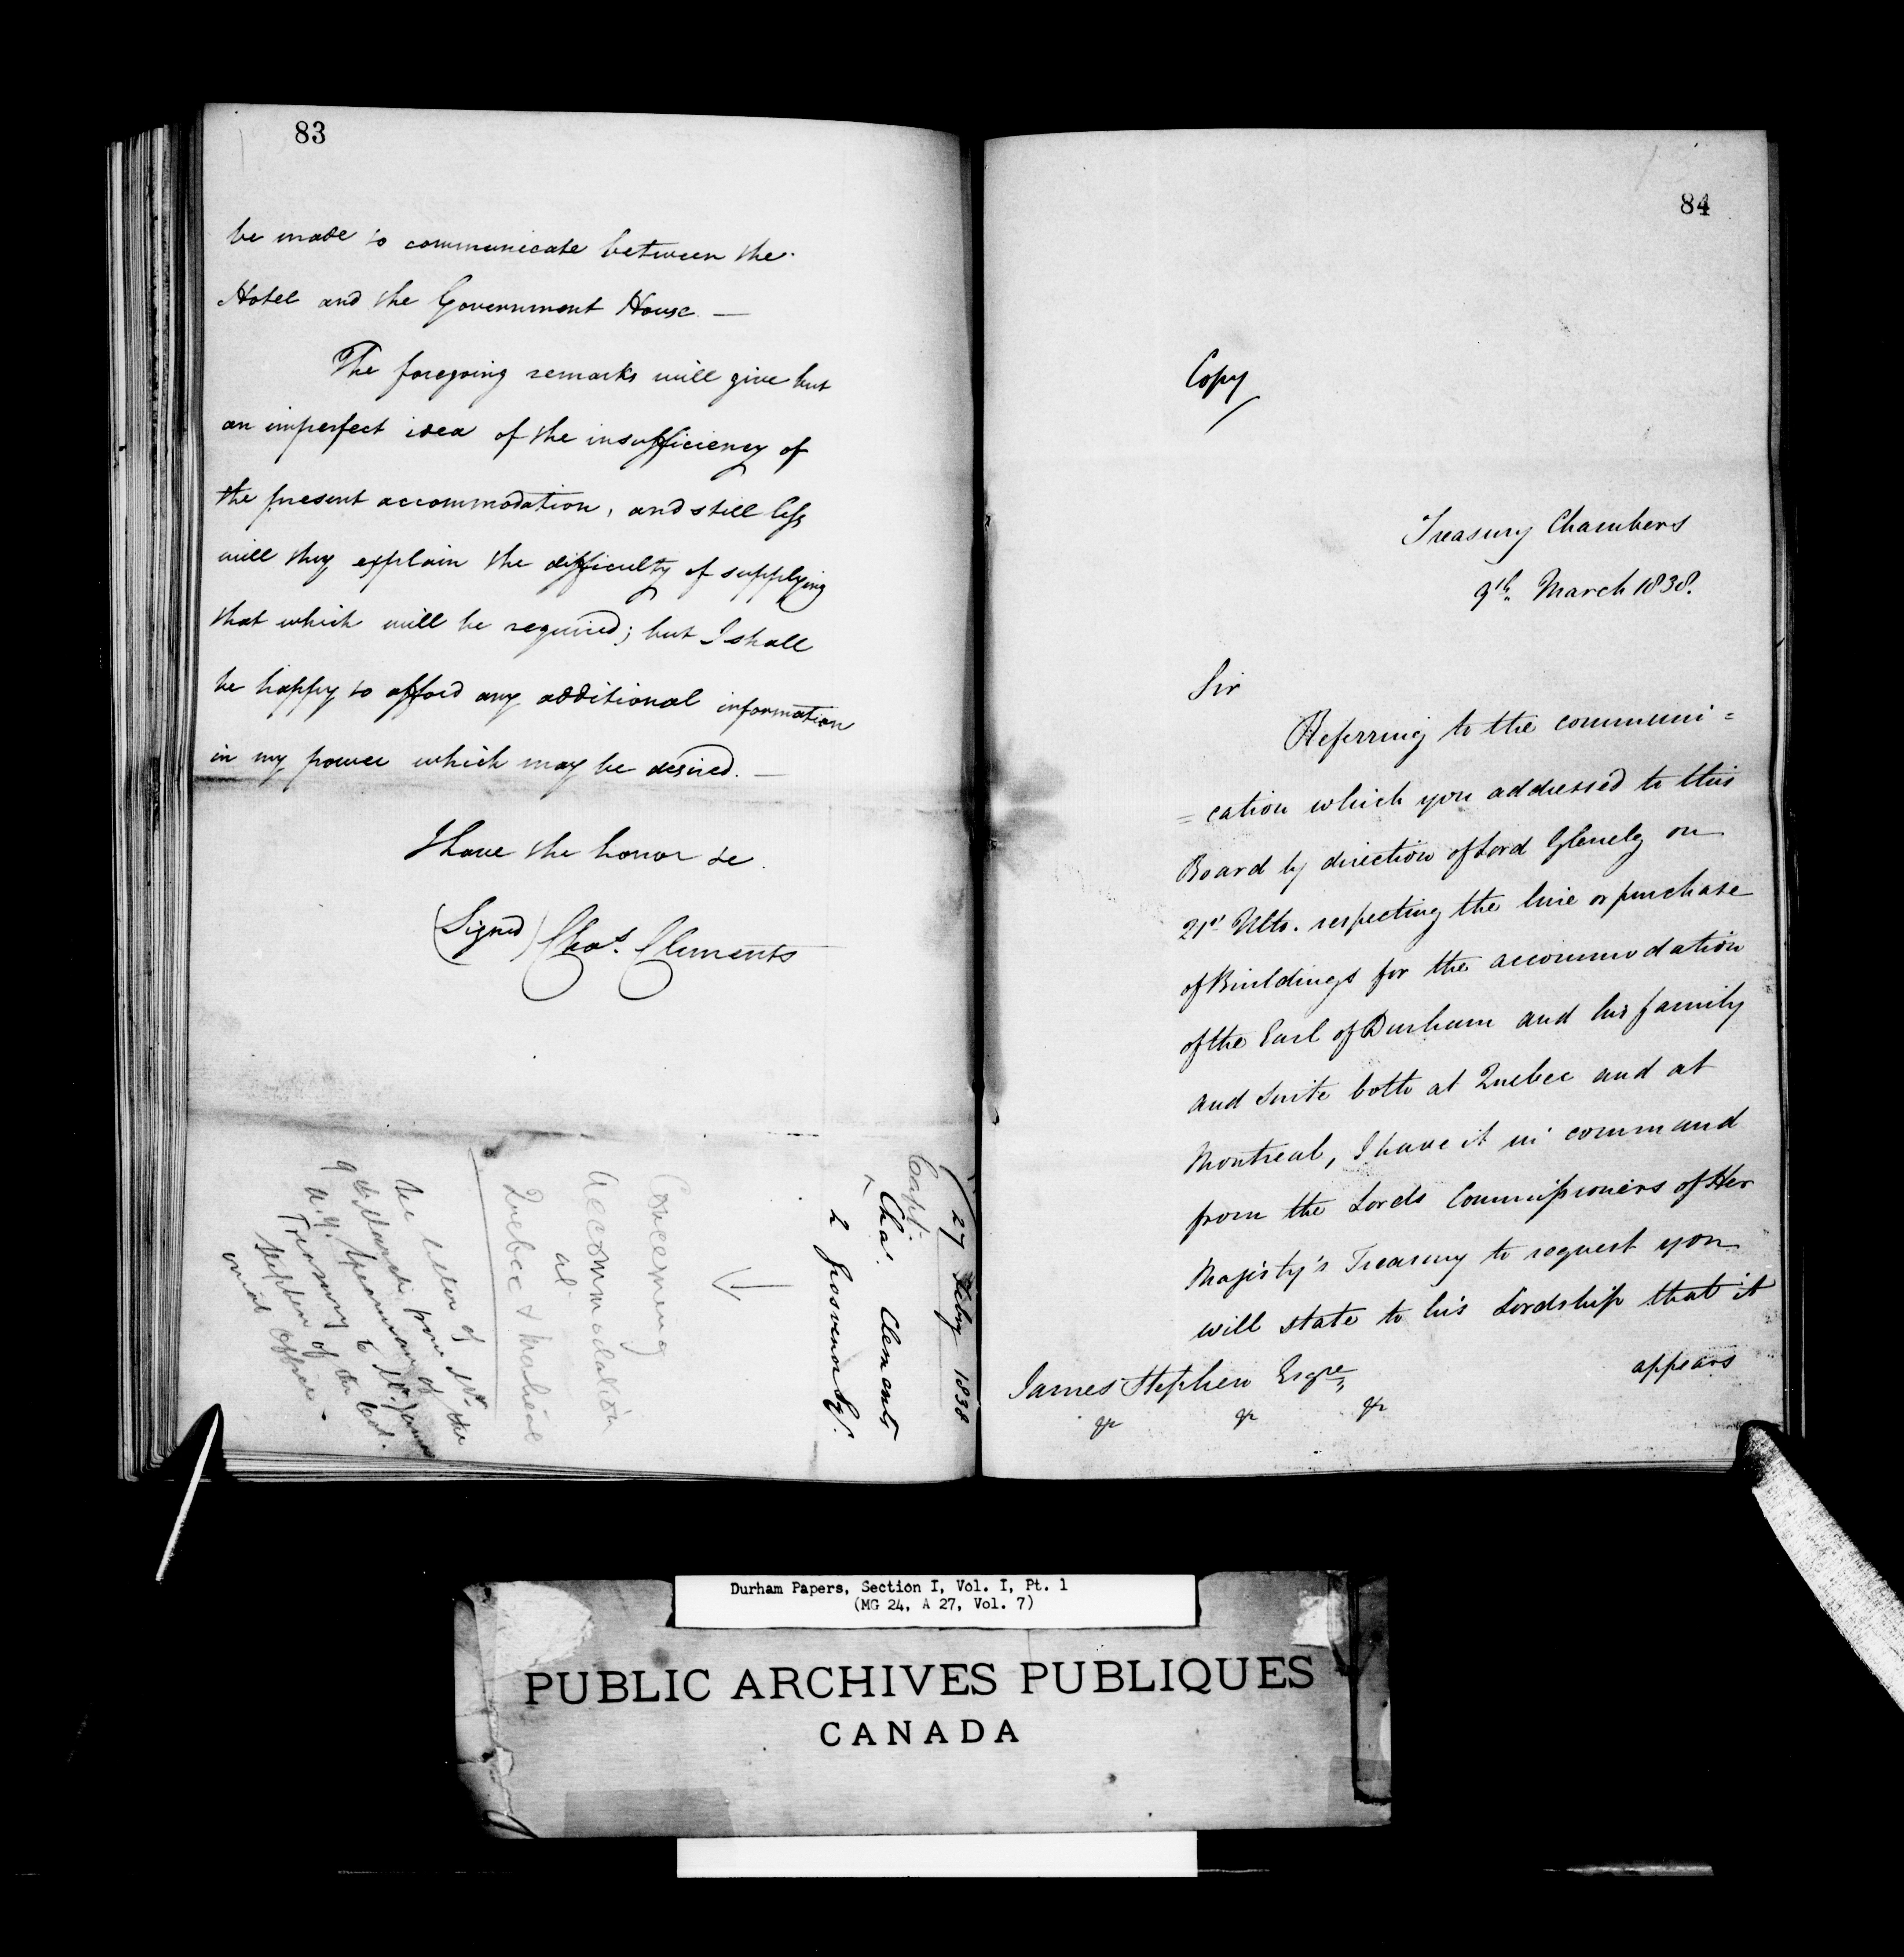 83
be made to communicate between the
Hotel and the Government House. —
The foregoing remarks will give but
an imperfect idea of the insufficiency of
the present accommodation, and still less
will they explain the difficulty of supplying
that which will be required; but I shall
be happy to afford any additional information
in my power which may be desired. —
I have the honor &c.
(Signed) Chas. Clements
27 Feby 1838
Capt.
Chas. Clements
2 Grosvenor Sqr.
Concerning
accommodation
at
Quebec & Montreal
See letter of the
9th March from Mr.
A.Y. Spearman of the
Treasury to Mr. James
Stephen of the Col-
onial Office.
84
Copy
Treasury Chambers
9th March 1838.
Sir
Referring to the communi=
=cation which you addressed to this
Board by direction of Lord Glenelg on
21st Ulto. respecting the hire or purchase
of Buildings for the accommodation
of the Earl of Durham and his family
and suite both at Quebec and at
Montreal, I have it in command
from the Lords Commissioners of Her
Majesty's Treasury to request you
will state to his Lordship that it
appears
James Stephen Esqre
&c &c &c
Durham Papers, Section I, Vol. I, Pt. 1
(MG 24, A 27, Vol. 7)
PUBLIC ARCHIVES PUBLIQUES
CANADA